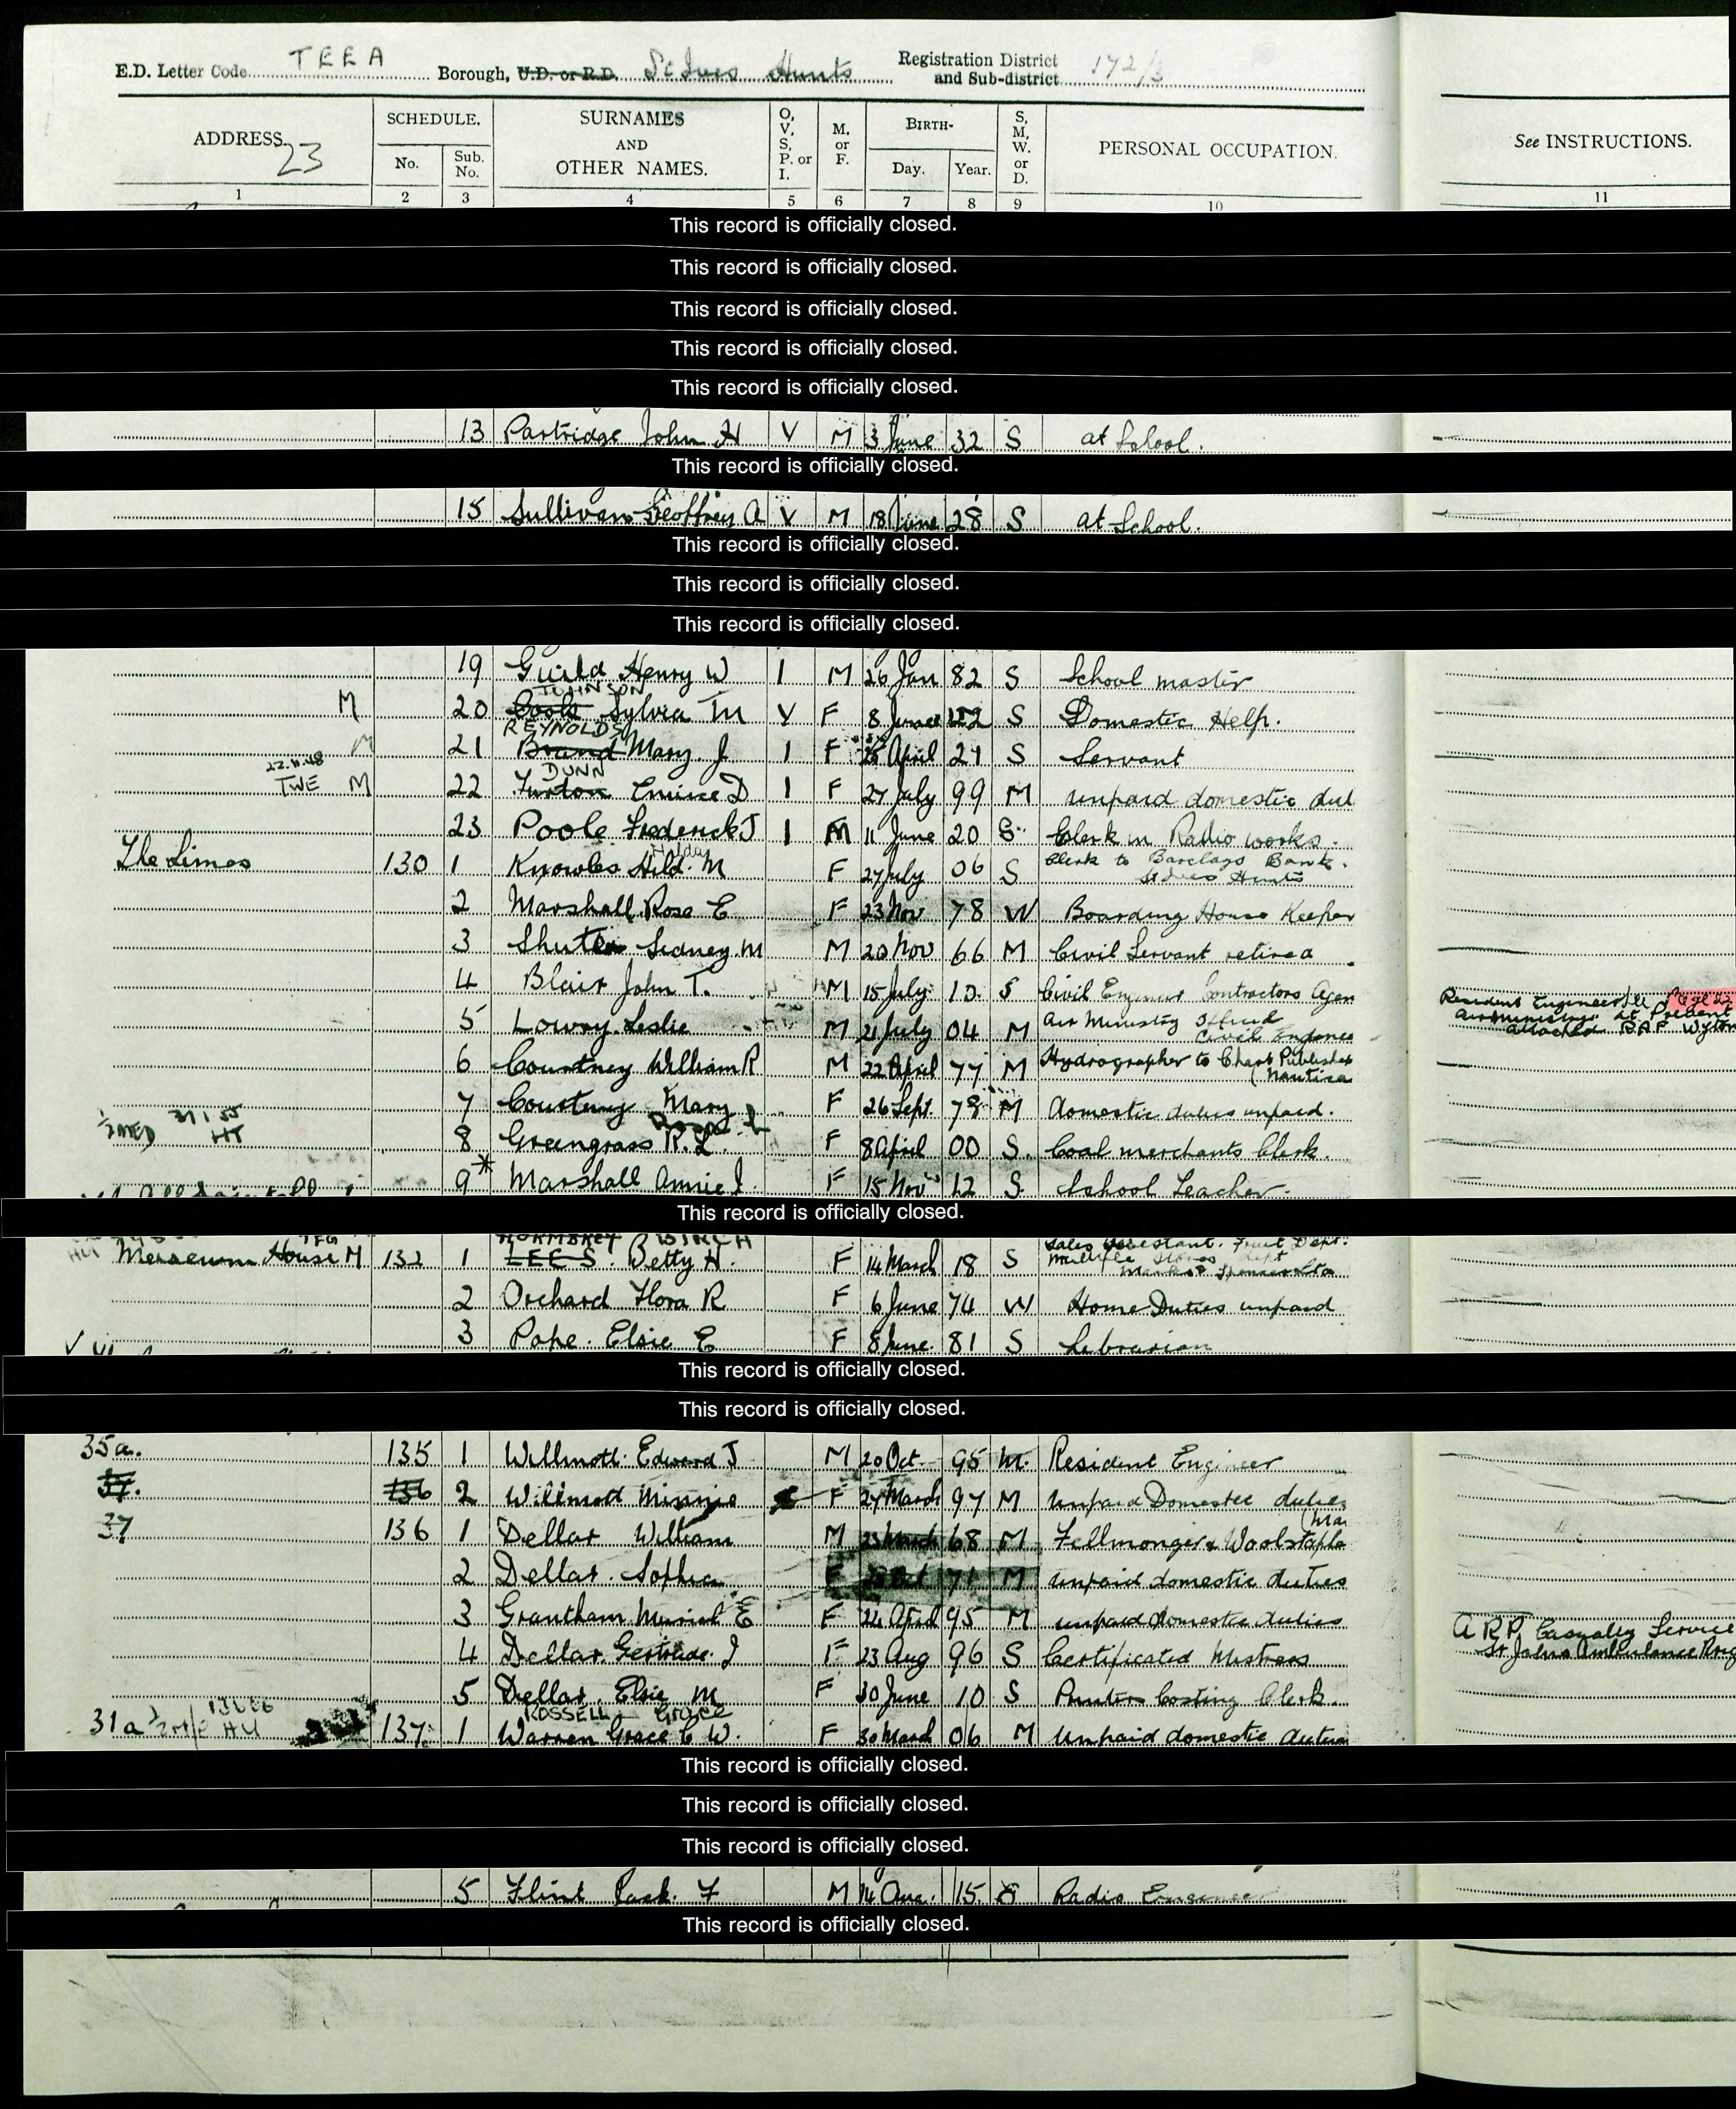 E.D. Letter Code TEEA Borough, U.D. or R.D. St Ives Hunts Registration District and Sub-district 172/3
ADDRESS. 23 SCHEDULE. No. Sub. No. SURNAMES AND OTHER NAMES. O, V, S, P. or I. M. or F. BIRTH- Day. Year. S, M, W. or D. PERSONAL OCCUPATION. See INSTRUCTIONS.
1 2 3 4 5 6 7 8 9 10 11
This record is officially closed.
This record is officially closed.
This record is officially closed.
This record is officially closed.
This record is officially closed.
13 Partridge John H V M 3 June 32 S at School.
This record is officially closed.
15 Sullivan Geoffrey A V M 18 June 28 S at School.
This record is officially closed.
This record is officially closed.
This record is officially closed.
19 Guild Henry W I M 26 Jan 82 S School master
JOHNSON
M 20 Sylvia M V F 8 June 22 S Domestic Help.
REYNOLDS
M 21 Brand Mary J I F 26 April 21 S Servant
22.11.48 DUNN
TWE M 22 D I F 27 July 99 M unpaid domestic dut
23 Poole Frederick J I M 11 June 20 S Clerk in Radio works.
Hilda
The Limes 130 1 Knowles Hild. M F 27 July 06 S Clerk to Barclays Bank. St Ives Hunts
2 Marshall Rose E F 23 Nov 78 W Boarding House Keeper
3 Shuter Sidney M M 20 Nov 66 M Civil Servant retired
4 Blair John T. M 15 July 12 S Civil Engineer Contractors Agen
5 Lowry Leslie M 21 July 04 M Air Ministry Official Civil Engineer Resident Engineer Air Ministry at Present attached RAF Wyton
6 Courtney William R M 22 April 77 M Hydrographer to Chart Publisher (Nautica
7 Courtney Mary F 26 Sept. 78 M domestic duties unpaid.
31 1 55 HT Rosa L
8 Greengrass R. L. F 8 April 00 S. Coal merchants Clerk.
9* Marshall Annie I. F 15 Nov 12 S. School Teacher.
This record is officially closed.
BIRCH
Museum House M 132 1 LEES. Betty H. F 14 March 18 S Sales Assistant. Fruit Dept. Multiple Stores Marks & Spencer Ltd
2 Orchard Flora R F 6 June 74 W Home Duties unpaid
3 Pope. Elsie E F 8 June. 81 S Librarian
This record is officially closed.
This record is officially closed.
35a. 135 1 Willmott. Edward J M 20 Oct 95 M. Resident Engineer
37. 136 2 Willmott Minnie F 27 March 97 M unpaid Domestic duties
37 136 1 Dellar William M 23 March 68 M Fellmonger & Woolstaple (Mas
2 Dellar. Sophia F Oct 71 M unpaid domestic duties
3 Grantham Muriel E F 24 April 95 M unpaid domestic duties
4 Dellar. Gertrude. J F 23 Aug 96 S Certificated Mistress A R P. Casualty Service St Johns Ambulance Brig
5 Dellar. Elsie M F 30 June 10 S Printers Costing Clerk.
ROSSELL Grace
31a HU 137. 1 Warren Grace C W. F 30 March 06 M Unpaid domestic duties
This record is officially closed.
This record is officially closed.
This record is officially closed.
5 Flint Jack. F M 14 Aug. 15 Radio Engineer
This record is officially closed.